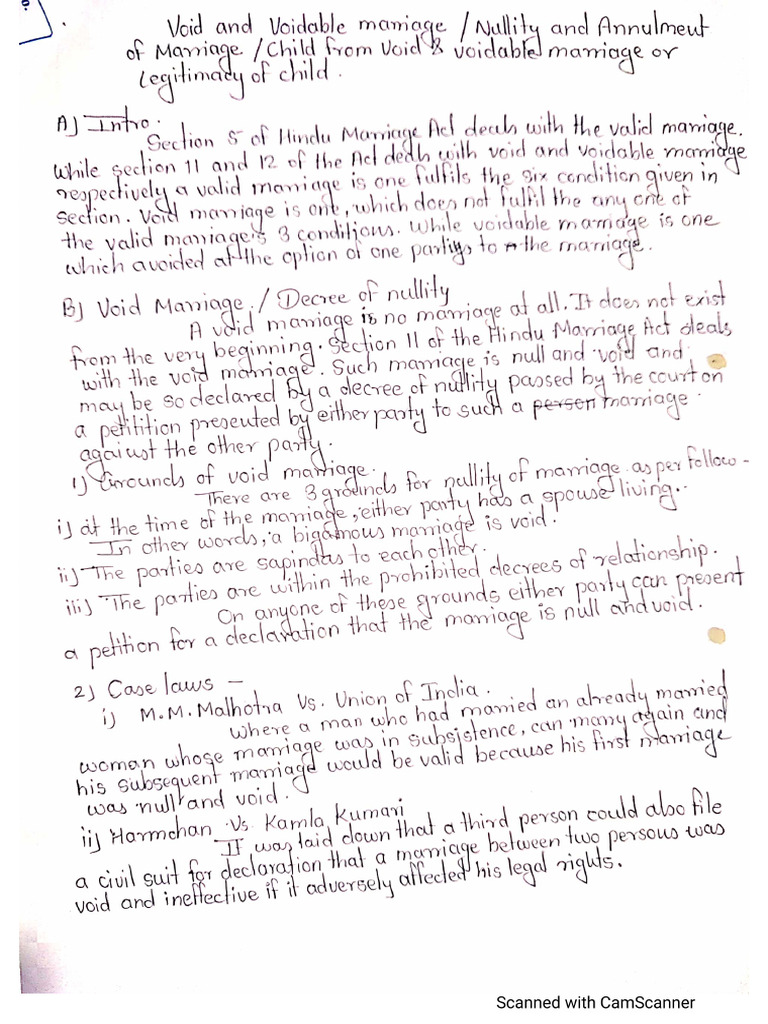 Void and Voidable marriage / Nullity and Annulment
of Marriage / Child from Void & voidable marriage or
Legitimacy of child.
A) Intro.
Section 5 of Hindu Marriage Act deals with the valid marriage.
while section 11 and 12 of the Act deals with void and voidable marriage
respectively a valid marriage is one fulfils the six condition given in
section. Void marriage is one, which does not fulfil the any one of
the valid marriage's 3 conditions. While voidable marriage is one
which avoided at the option of one partiys to the marriage.
B) Void Marriage / Decree of nullity
A void marriage is no marriage at all. It does not exist
from the very beginning. Section 11 of the Hindu Marriage Act deals
with the void marriage. Such marriage is null and void and
may be so declared by a decree of nullity passed by the court on
a petitition presented by either party to such a person marriage.
against the other party.
1) Grounds of void marriage.
There are 3 grounds for nullity of marriage as per follow -
i) at the time of the marriage, either party has a spouse living.
In other words, a bigamous marriage is void.
ii) The parties are sapindas to each other.
iii) The parties are within the prohibited decrees of relationship.
On anyone of these grounds either party can present
a petition for a declaration that the marriage is null and void.
2) Case laws -
i) M.M. Malhotra Vs. Union of India.
Where a man who had married an already married
woman whose marriage was in subsistence, can marry again and
his subsequent marriage would be valid because his first marriage
was null and void.
ii) Harmohan Vs. Kamla Kumari
It was laid down that a third person could also file
a civil suit for declaration that a marriage between two persons was
void and ineffective if it adversely affected his legal rights.
Scanned with CamScanner